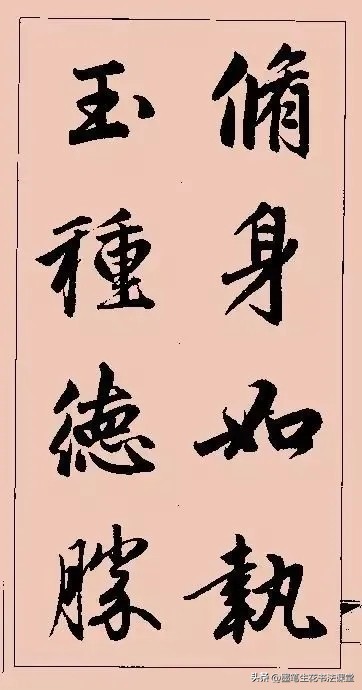 脩身如執
玉種德勝
头条 @墨笔生花书法课堂